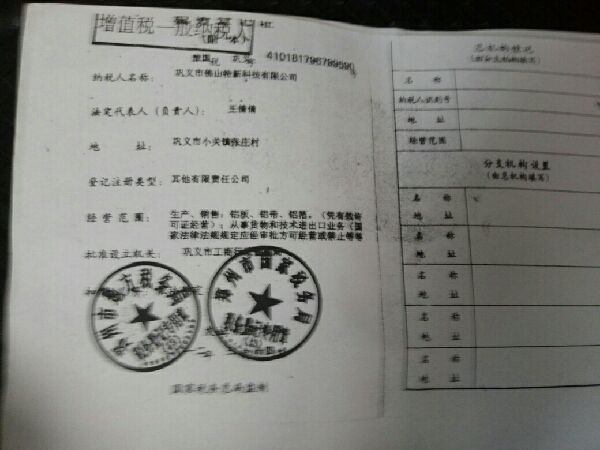 增值税一般纳税人
(副 本)
410181796799590
纳税人名称：
法定代表人（负责人）：
地 址：
巩义市小关镇张庄村
登记注册类型：
其他有限责任公司
经营范围：
生产、销售：铝板、铝带、铝箔。（凭有效许
可证经营）；从事货物和技术进出口业务（国
家法律法规规定应经审批方可经营或禁止
批准设立机关：
巩义市工商行政
郑州市国家税务局
国家税务总局监制
总机构情况
(由分支机构填写)
名 称
纳税人识别号
地 址
经营范围
分支机构设置
(由总机构填写)
名 称
地 址
名 称
地 址
名 称
地 址
名 称
地 址
名 称
地 址